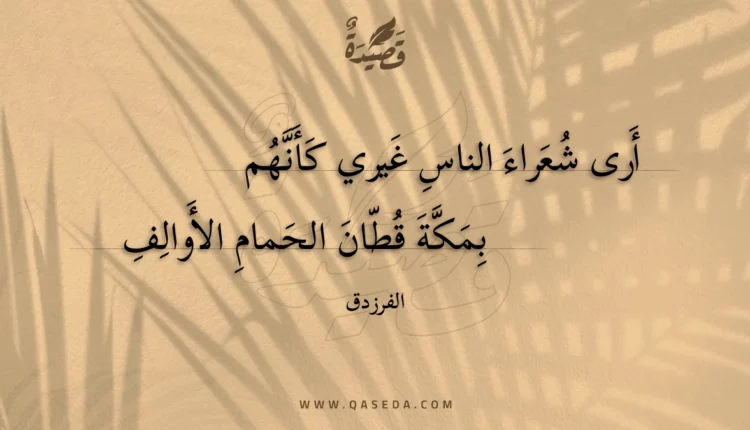 قَصِيْدَةٌ
أَرى شُعَراءَ الناسِ غَيري كَأَنَّهُم
بِمَكَّةَ قُطّانَ الحَمامِ الأَوالِفِ
الفرزدق
WWW.QASEDA.COM